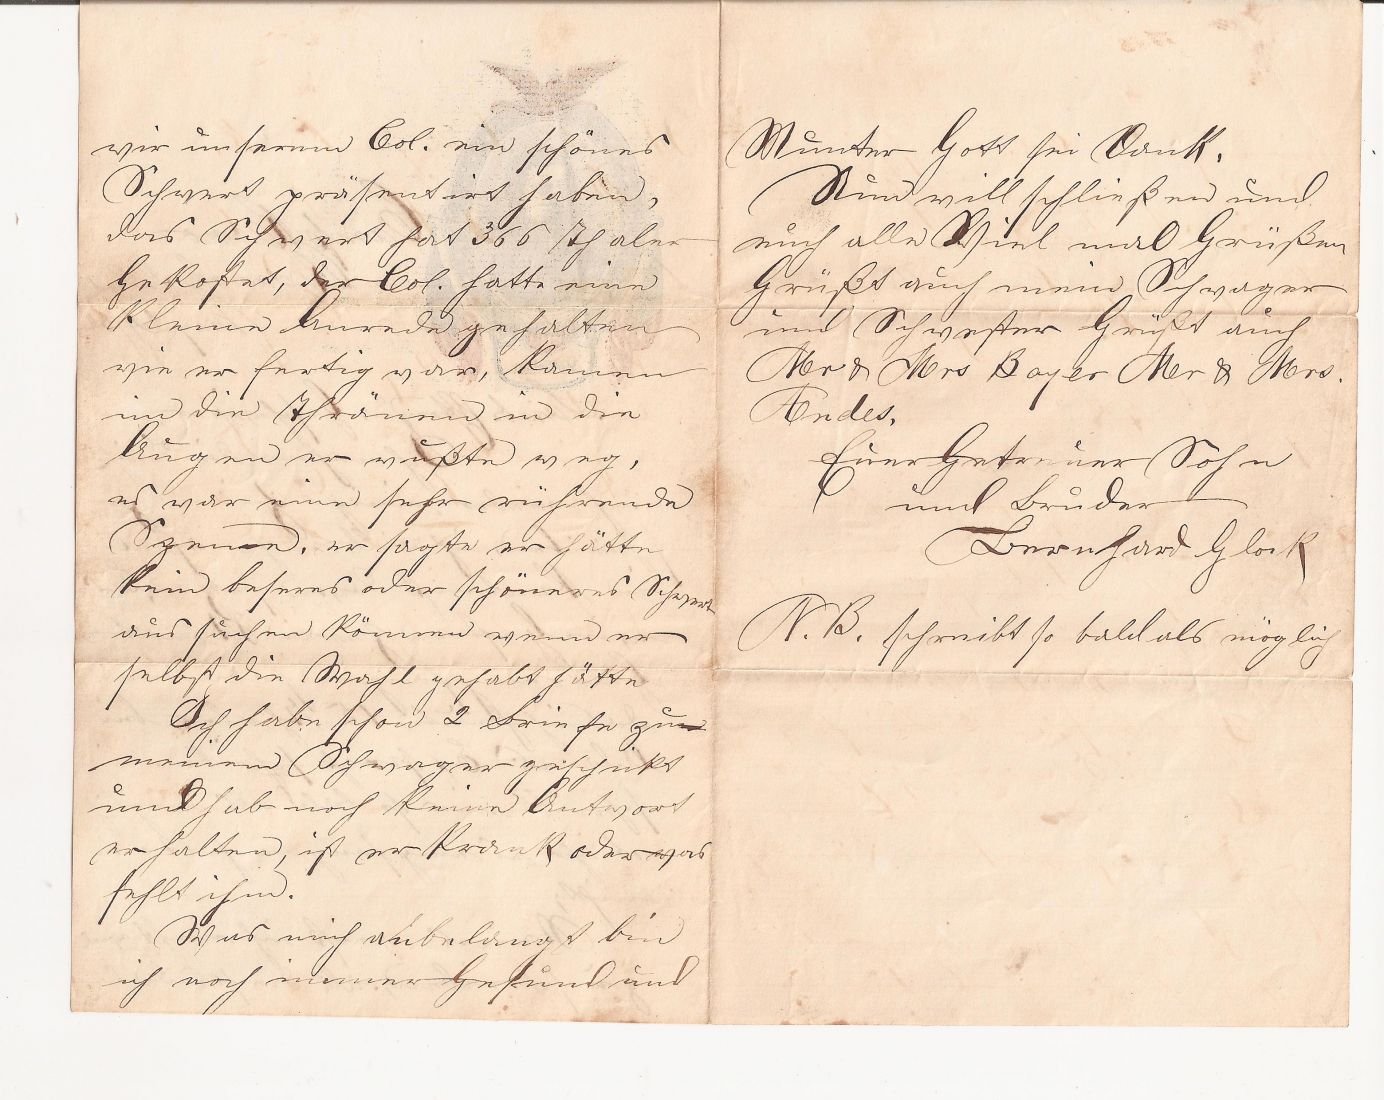 wir unserem Col. ein schönes
Schwert präsentirt haben,
das Schwert hat 366 Thaler
Gekostet, der Col. hatte eine
Kleine Anrede gehalten
wie er fertig war, kamen
im die Thränen in die
Augen er wußte weg,
es war eine sehr rührende
Szene. er sagte er hätte
kein beseres oder schöneres Schwert
aussuchen können wenn er
selbst die Wahl gehabt hätte
Ich habe schon 2 Briefe zu
meinem Schwager geschikt
und hab noch keine Antwort
erhalten, ist er Krank oder was
fehlt ihm.
Was mich anbelangt bin
ich noch immer Gesund und
Munter Gott sei Dank.
Nun will schließen und
euch alle Viel mal Grüßen
Grüßt auch mein Schwager
und Schwester Grüßt auch
Mr & Mrs Boyer Mr & Mrs.
Endes.
Euer Getreuer Sohn
und Bruder
Bernhard Glock
N.B. schreibt so bald als möglich